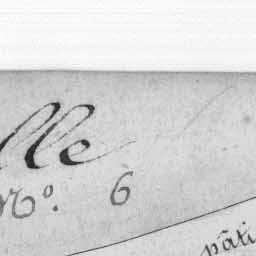 lle
Nº. 6
pâti